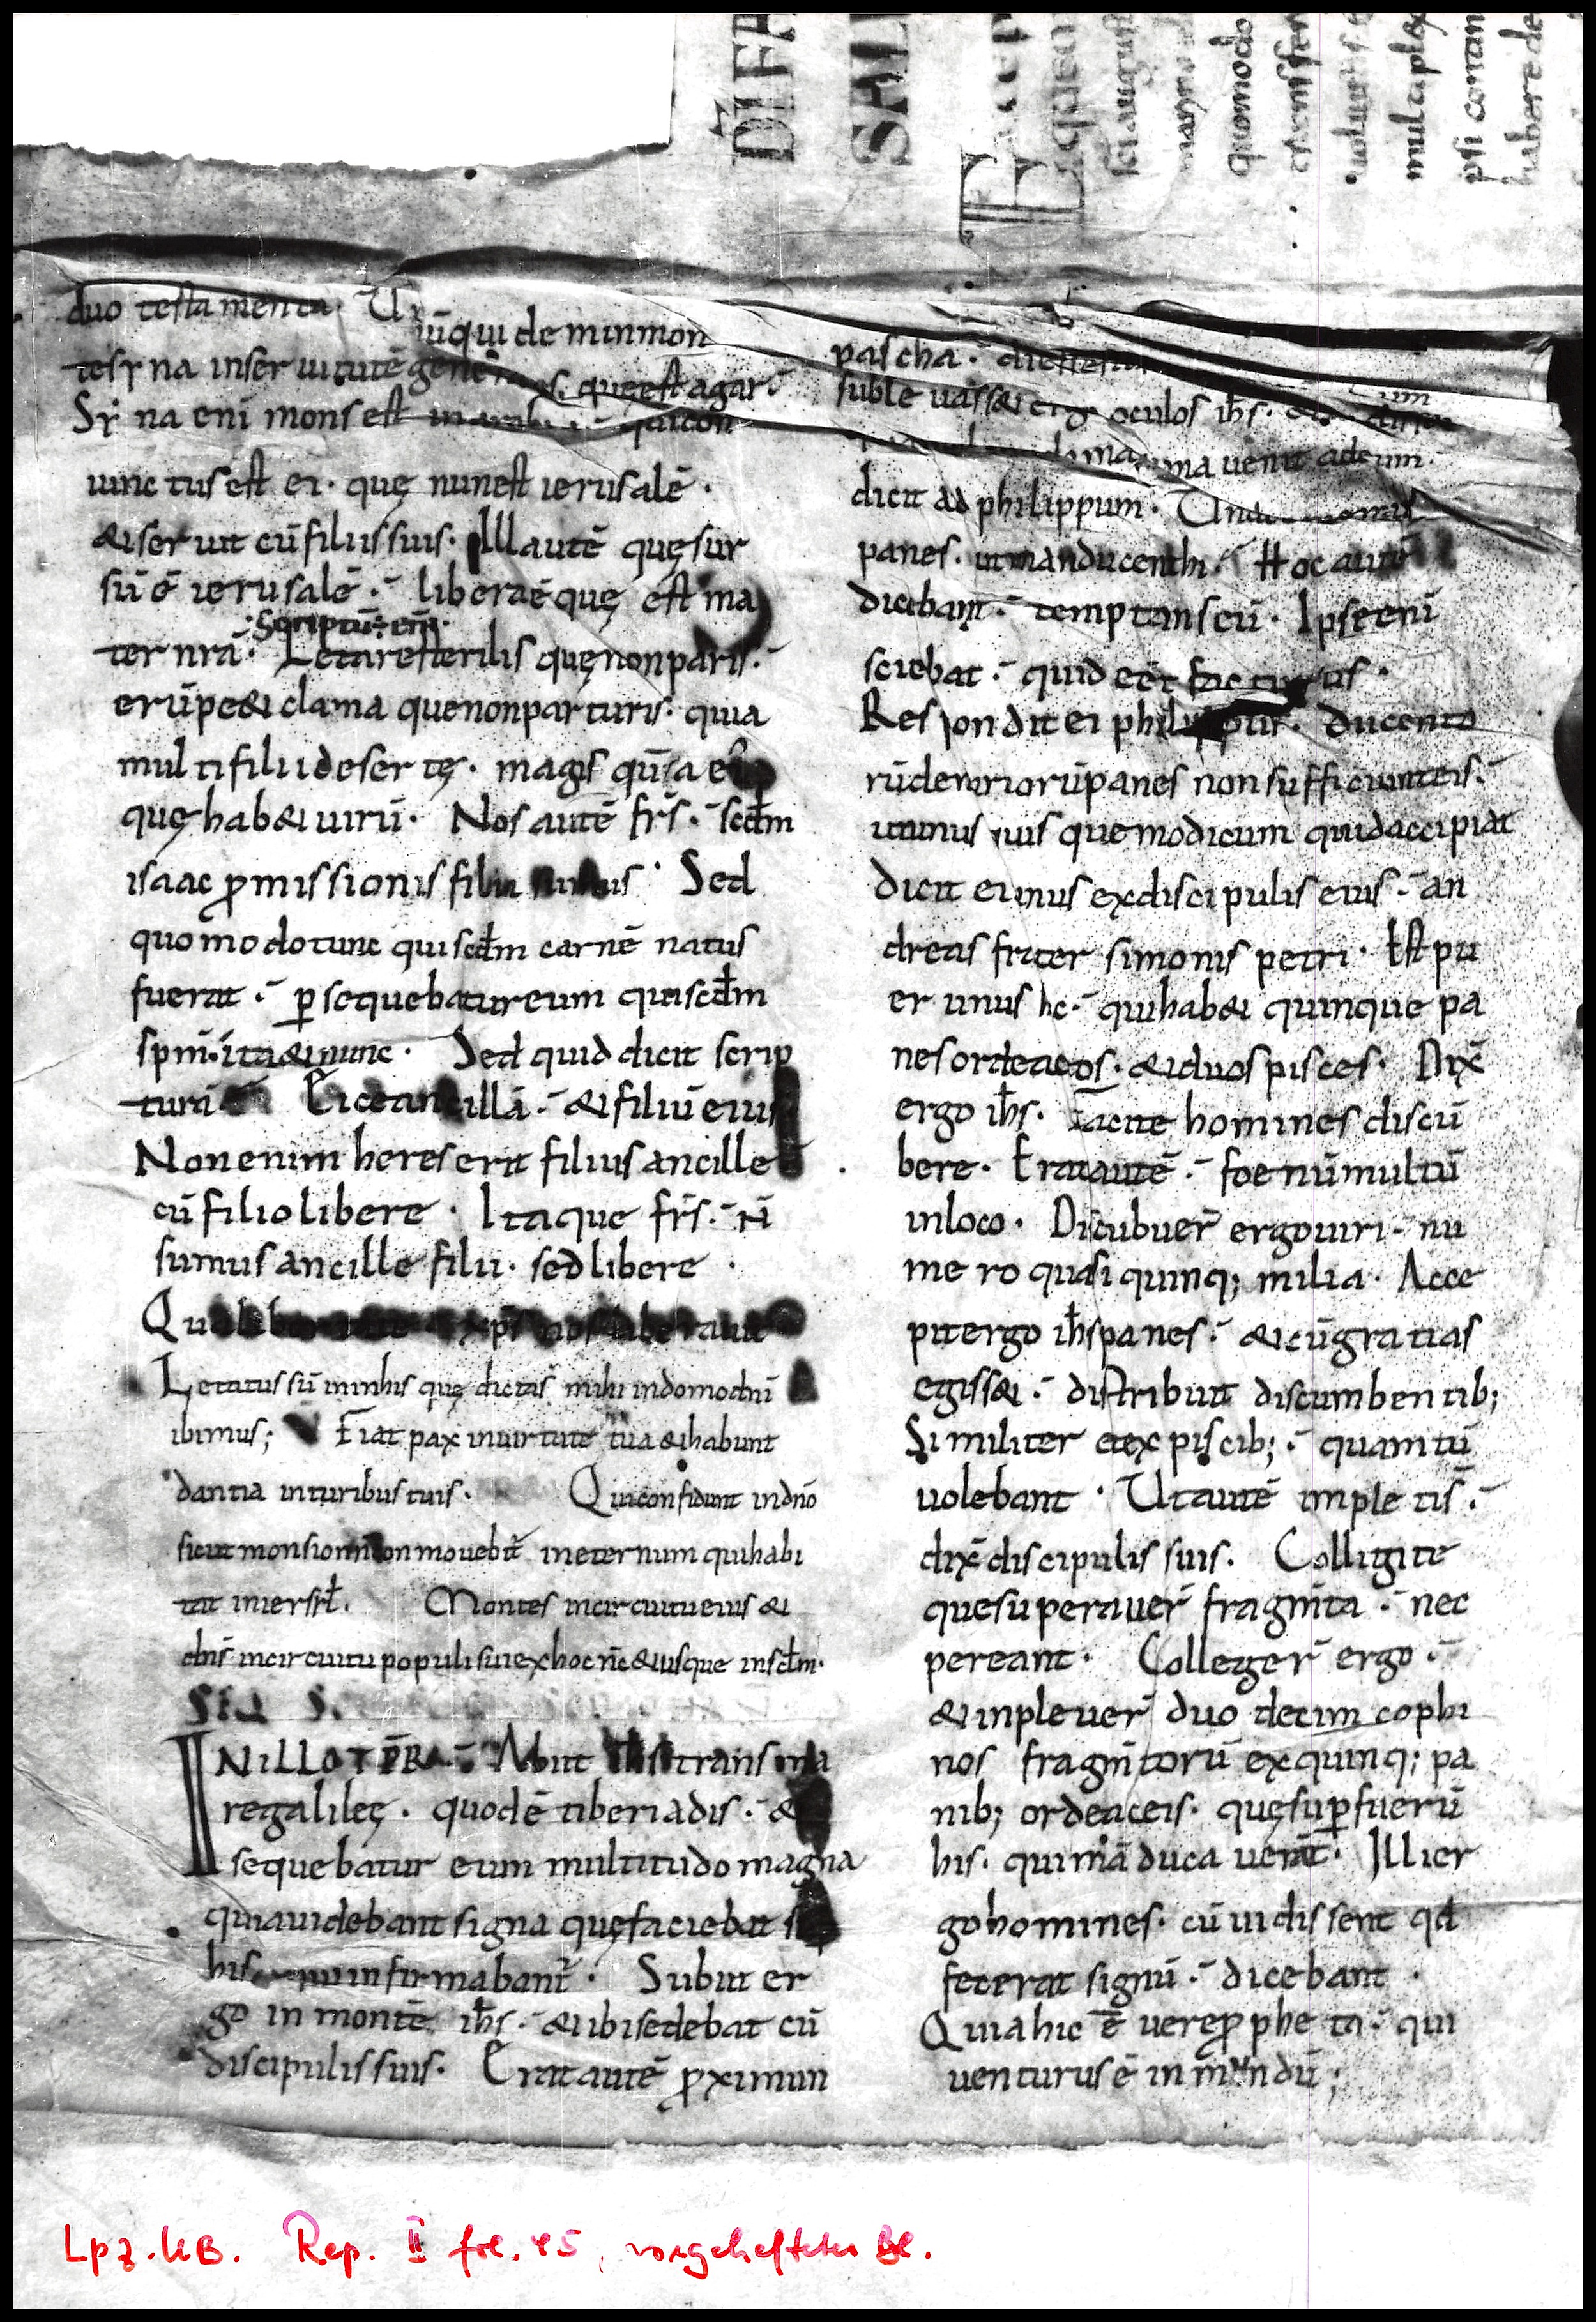 DI FA
SAL
quomodo
mulaplex
psi coram
habere de
duo testamenta. Un
iūqui de minmon
tesẏna inseruitutē gene quęest agar.
Sẏna eni mons est quicon
iunctus est ei. quę nunest ierusalē.
& seruit cū filiis suis. Illa autē quę sur
sū ē ierusalē. libera ē quę est ma
Scriptū ē eni.
ter nr̄a. Letare sterilis quę non paris.
erūpe & clama que non parturis. quia
multi filii desertę. magis quā
quę hab& uirū. Nos autē fr̄s. scd̄m
isaac ꝓmissionis filii sumus. Sed
quomodo tunc qui scd̄m carnē natus
fuerat. ꝑsequebatur eum qui scd̄m
spm̄. ita & nunc. Sed quid dicit scrip
tura Eice ancillā. & filiū eius
Non enim heres erit filius ancille
cū filio libere. Itaque fr̄s. n̄
sumus ancille filii. sed libere.
Qua xp̄s nos liberauit
Letatus sū in his quę dicta s̄ mihi in domo dn̄i
ibimus; Fiat pax in uirtute tua & habun
dantia in turibus tuis. Qui confidunt in dn̄o
sicut mons sion non mouebit̄ in eternum qui habi
tat in iersrł. Montes in circuitu eius &
dn̄s in circuitu populi sui ex hoc n̄c & usque in scł̄m.
SEQ S.
IN ILLO TP̄R. Abiit ih̄s trans ma
re galileę. quod ē tiberiadis. &
sequebatur eum multitudo magna
quia uidebant signa quę faciebat
his qui infirmabant̄. Subiit er
go in montē ih̄s. & ibi sedebat cū
discipulis suis. Erat autē ꝓximum
pascha. dies festus
subleuass& ergo oculos ih̄s.
uenit ad eum.
dicit ad philippum. Unde
panes. ut manducent hi. Hoc autē
dicebat. temptans eū. Ipse eni
sciebat. quid eēt facturus.
Respondit ei philippus. Ducento
rū denariorū panes non sufficiunt eis.
ut unus quis que modicum quid accipiat
Dicit ei unus ex discipulis eius. an
dreas frater simonis petri. Est pu
er unus hc. qui hab& quinque pa
nes ordeaceos. & duos pisces. Dix̄
ergo ih̄s. Facite homines discū
bere. Erat autē. foenū multū
in loco. Discubuer̄ ergo uiri. nu
mero quasi quinq; milia. Acce
pit ergo ih̄s panes. & cū gratias
egiss&. distribuit discumbentib;
Similiter & ex piscib;. quantū
uolebant. Ut autē impleti s̄.
dix̄ discipulis suis. Colligite
que superauer̄ fragm̄ta. nec
pereant. Colleger̄ ergo.
& inpleuer̄ duodecim cophi
nos fragm̄torū ex quinq; pa
nib; ordeaceis. quę suꝑfuerū
his. qui māducauerāt. Illi er
go homines. cū uidissent qd̄
fecerat signū. dicebant.
Quia hic ē uere ꝓpheta. qui
uenturus ē in mundū;
Lpz. UB. Rep. II fol. 45, vorgeheftetes Bl.